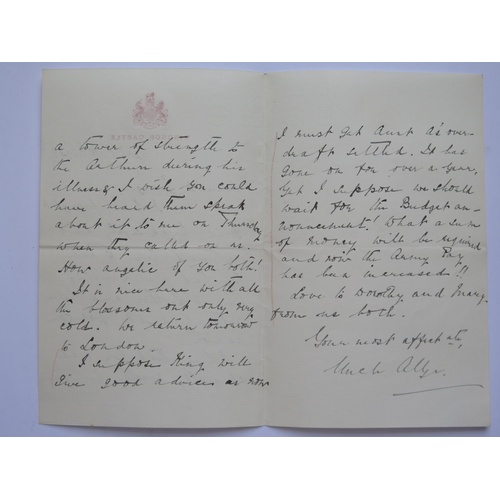 a tower of strength to
the Arthurs during his
illness & I wish you could
have heard them speak
about it to me on Thursday
when they called on us.
How angelic of you both!
It is nice here with all
the blossoms out only very
cold. We return tomorrow
to London.
I suppose King will
give good advices as now
I must get Aunt A's over
draft settled. It has
gone on for over a year,
yet I suppose we should
wait for the Budget an-
nouncement! What a sum
of money will be required
and now the Army Pay
has been increased!!
Love to Dorothy and Mary
from us both.
Your most affect ate,
Uncle Alge.